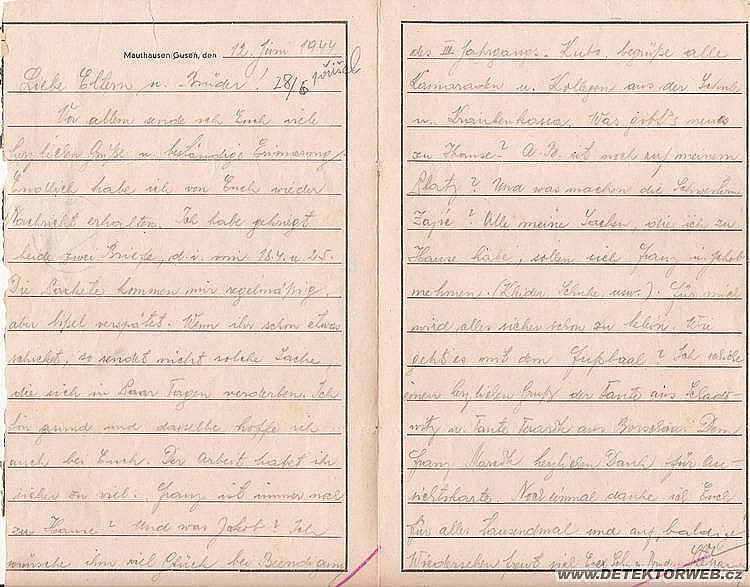 Mauthausen/Gusen, den 12. Juni 1944
Liebe Eltern u. Brüder! 28/6 přišel
Vor allem sende ich Euch viele
herzlichen Grüße u. beständige Erinnerung.
Endlich habe ich von Euch wieder
Nachricht erhalten. Ich habe gekriegt
beide zwei Briefe, d. i. vom 16.4. u. 2.5.
Die Packete kommen mir regelmäßig,
aber verspätet. Wenn ihr schon etwas
schicket, so sendet nicht solche Sache,
die sich in Paar Tagen verderben. Ich
bin gesund und dasselbe hoffe ich
auch bei Euch. Der Arbeit habt ihr
sicher zu viel. Franz ist immer noch
zu Hause? Und was Jakob? Ich
wünsche ihm viel Glück bei Beendigung
des III Jahrganges. Kuts, begrüße alle
Kamaraden u. Kollegen aus der Schule
u. Krankenkassa. Was gibt's neues
zu Hause? A. B. ist noch auf meinem
Platz? Und was machen die Schwestern
Zapič? Alle meine Sachen, die ich zu
Hause habe, sollen sich Franz u. Jakob
nehmen. (Kleider, Schuhe, usw.). Für mich
wird alles sicher schon zu klein. Wie
geht es mit dem Fußbaal? Ich schicke
einen herzlichen Gruß der Tante aus
u. Tante aus Dem
Franz herzlichen Dank für An-
sichtskarte. Noch einmal danke ich Euch
für alles tausendmal und auf baldige
Wiedersehen freut sich
WWW.DETEKTORWEB.CZ